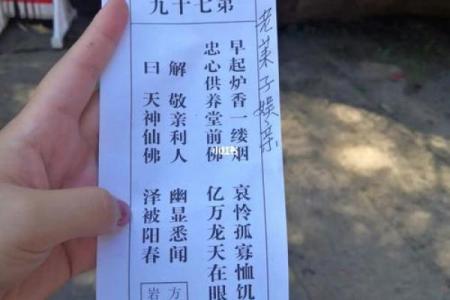 第七十九
老莱子娱亲
早起炉香一缕烟 哀怜孤寡恤饥
忠心供养堂前佛 亿万龙天在眼
解 敬亲利人 幽显悉闻
曰 天神仙佛 泽被阳春
方
岩
小红书